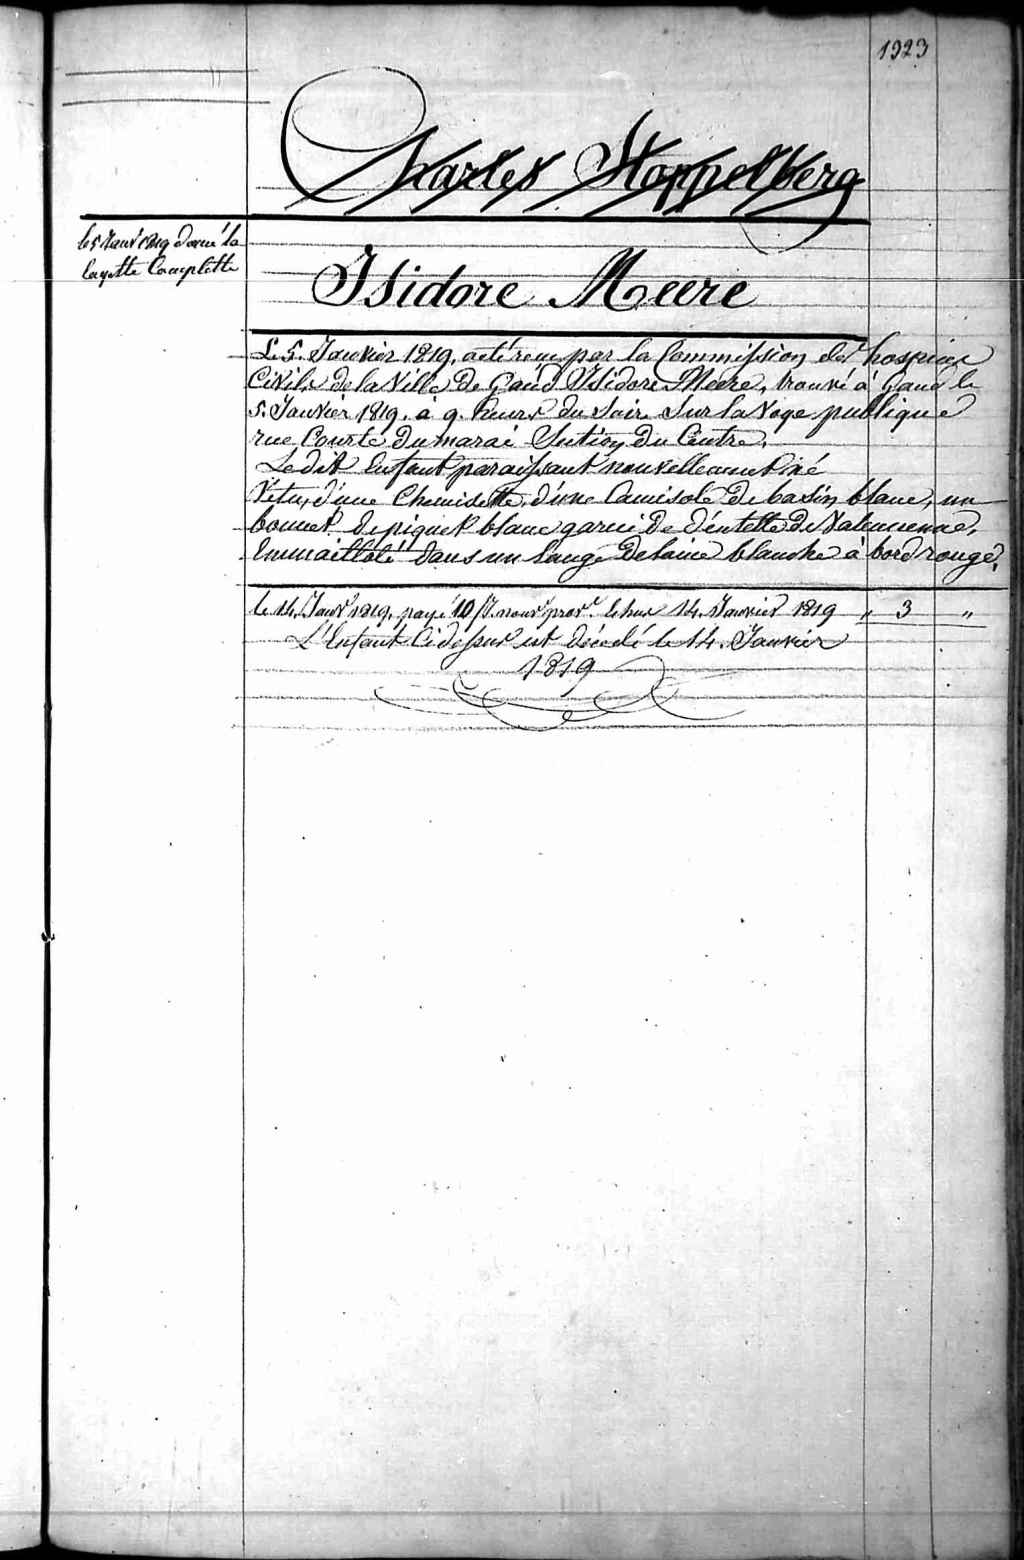 1923
Charles Stoppelberg
le 5 Janvr 1819 donné la
layette Complette
Isidore Meere
Le 5. Janvier 1819, a été reçu par la Commission des hospices
Civils de la Ville de Gand Isidore Meere, trouvé à Gand le
5. Janvier 1819. à 9. heures du Soir Sur la Voye publique
rue Courte du marai Section du Centre.
Le dit Enfant paraissant nouvellement né
Vêtu, d'une Chemisette, d'une Camisole de basin blanc, un
bonnet de piquet blanc garni de déntelle de Valencienne,
Emmailloté dans un lange de laine blanche à bord rouge.
le 14. Janvr 1819. payé 10 Jrs nourre provre échus 14. Janvier 1819 " 3 "
L'Enfant Cidessus est decedé le 14. Janvier
1819